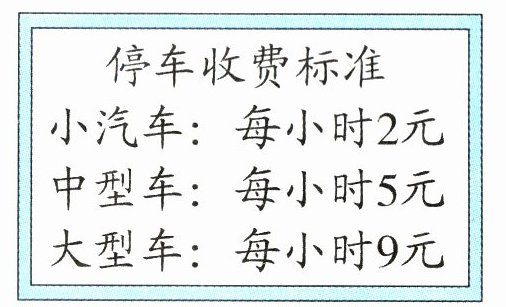 停车收费标准
小汽车：每小时2元
中型车：每小时5元
大型车：每小时9元